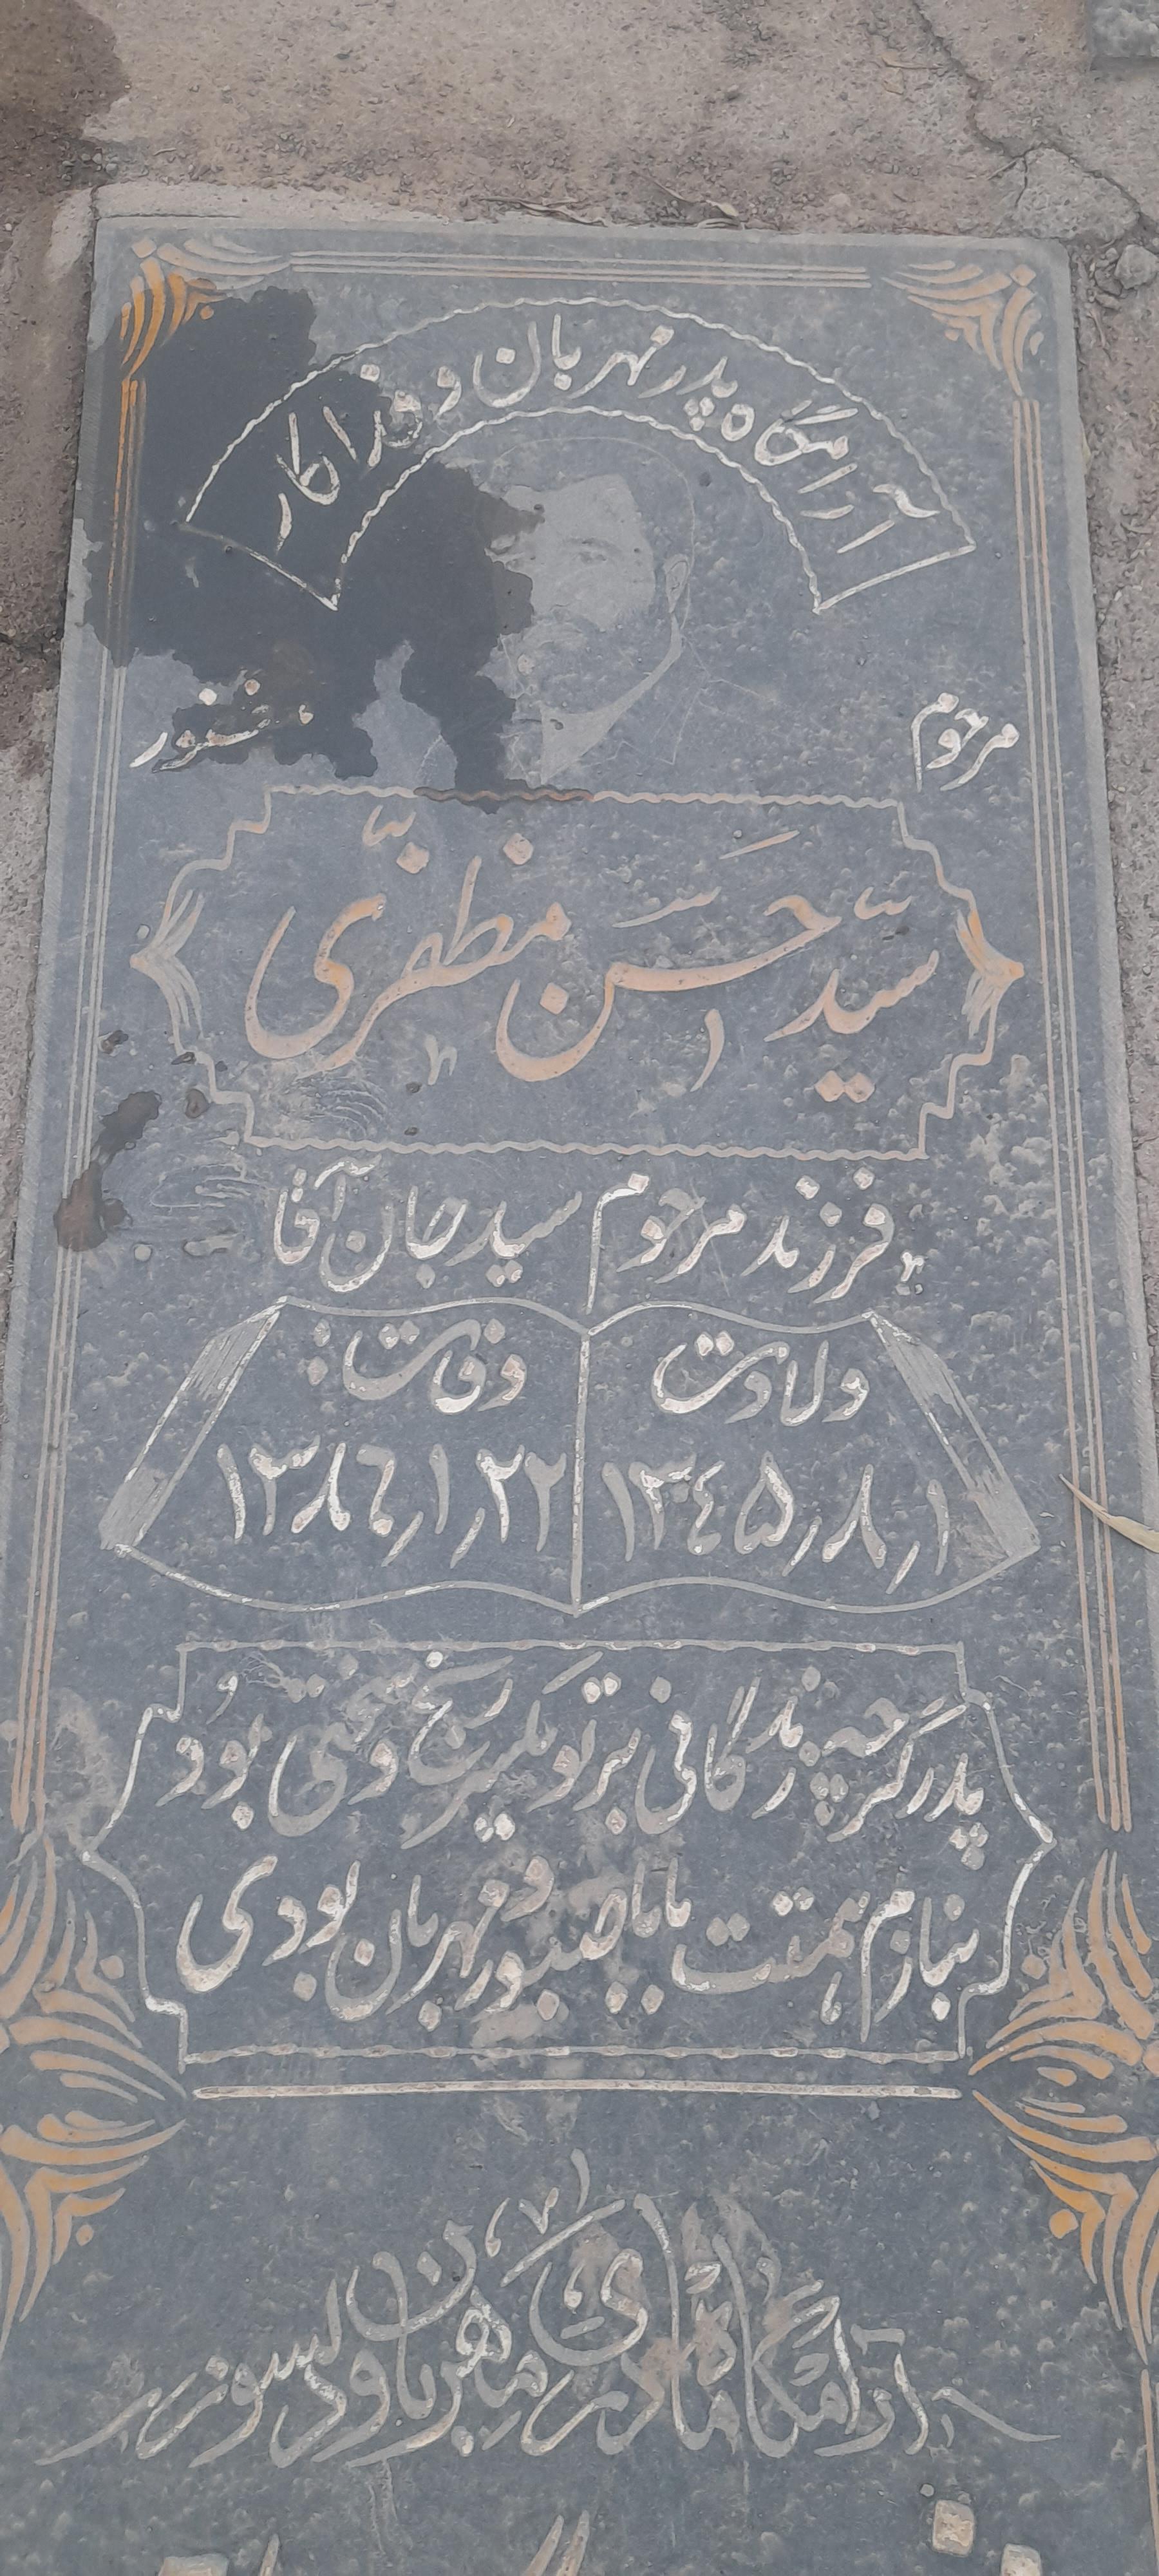 آرامگاه پدر مهربان و فداکار
مرحوم
سید حسن مظفری
فرزند مرحوم سید جان آقا
ولادت
وفات:
۱ر۸ر۱۳۴۵
۲۲ر۱ر۱۳۸۶
پدر گرچه زندگانی بر تو یکسر رنج و سختی بود
بنازم همتت بابا صبور و مهربان بودی
آرامگاه مادری مهربان و دلسوز